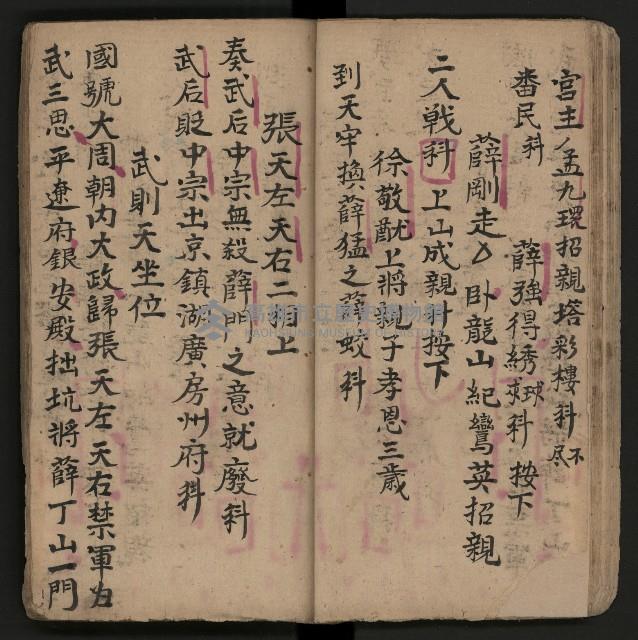 宮主ノ孟九環招親塔彩樓科不尽
畨民科　薛強得綉球科　按下
薛剛走入卧龍山紀鸞英招親
二人戰科上山成親科按下
徐敬猷上將親子孝恩三歲
到天牢換薛猛之薛蛟科
張天左天右二相上
奏武后中宗無殺薛門之意就廢科
武后貶中宗出京鎮湖廣房州府科
武則天坐位
國號大周朝内大政歸張天左天右禁軍為
武三思平遼府銀安殿拙坑將薛丁山一門
高雄市立歷史博物館
KAOHSIUNG MUSEUM OF HISTORY